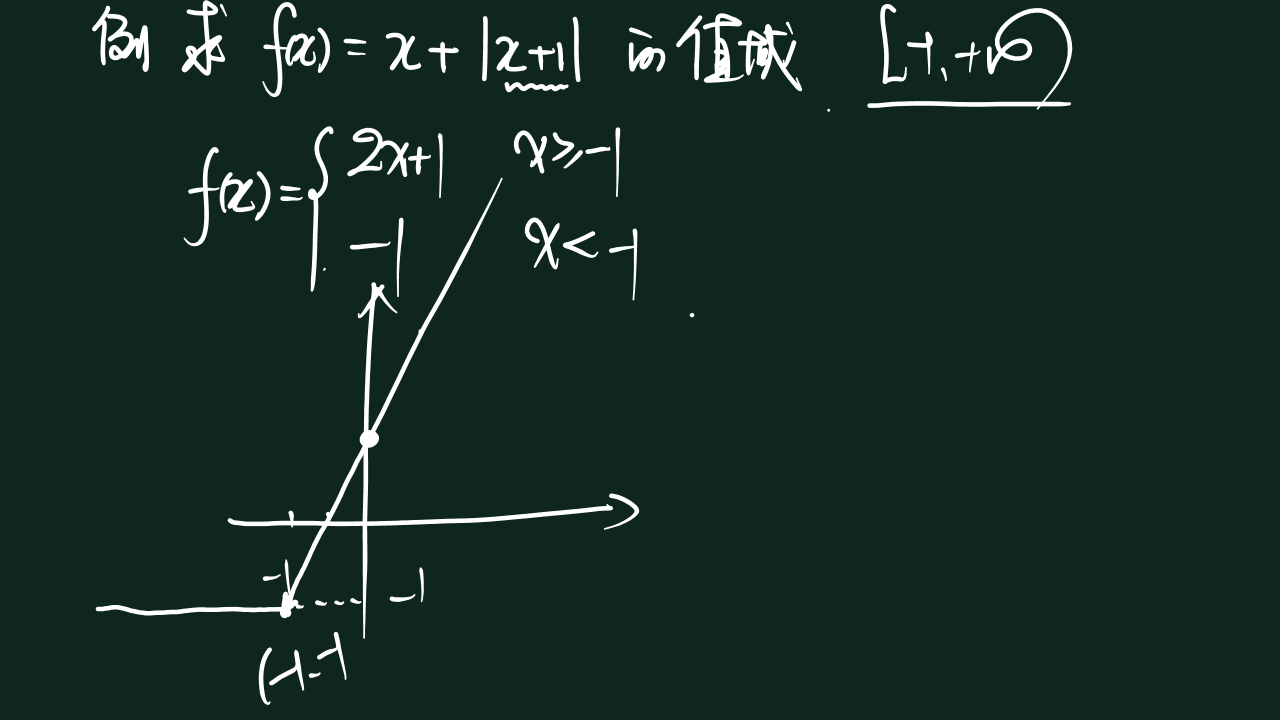 例 求 f(x) = x + |x+1| 的值域 [-1, +∞)
f(x) = { 2x+1 x ⩾ -1
-1 x < -1
-1
-1
(-1. -1